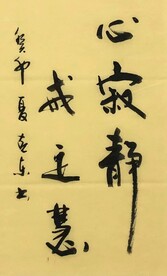 心寂静
戒定慧
癸卯夏东书